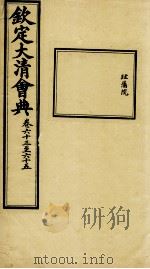 欽定大清會典
卷六十三至六十五
理藩院